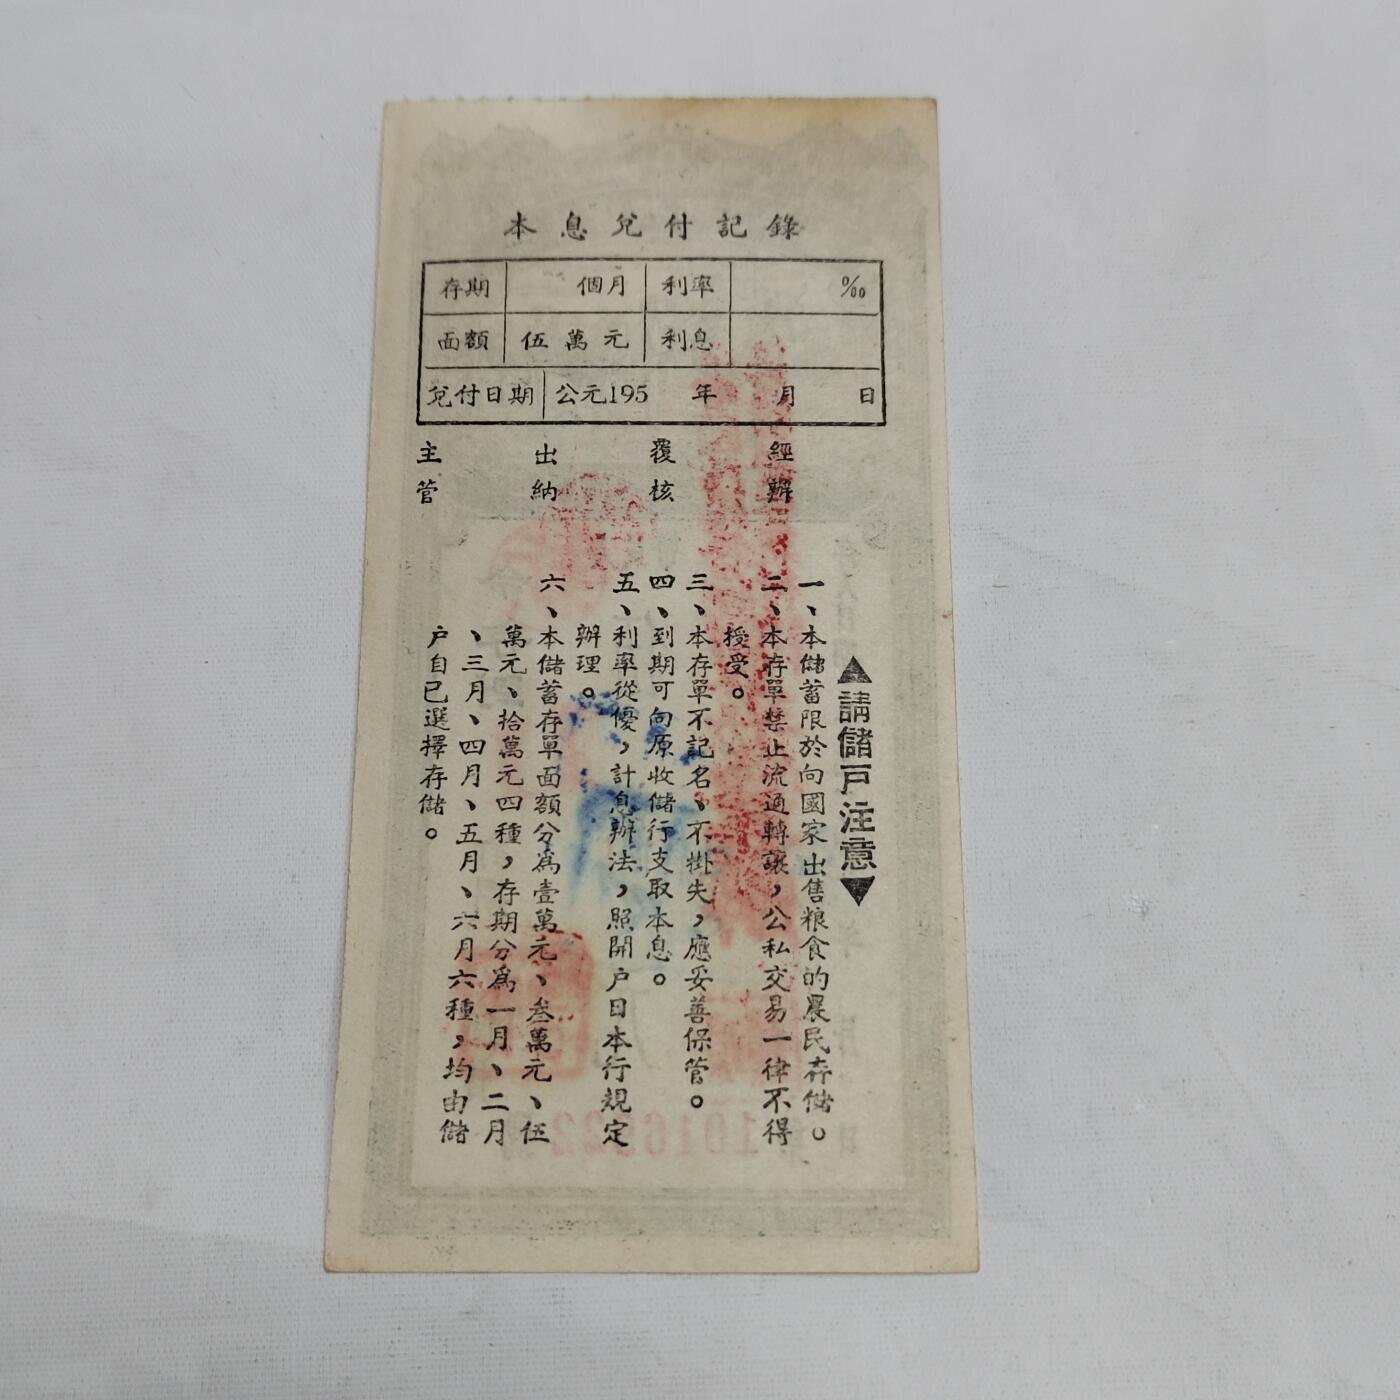 本息兌付記錄
存期 個月 利率 ‰
面額 伍萬元 利息
兌付日期 公元195 年 月 日
經辦 覆核 出納 主管
▲請儲戶注意▼
一、本儲蓄限於向國家出售粮食的農民存儲。
二、本存單禁止流通轉讓，公私交易一律不得
授受。
三、本存單不記名、不掛失，應妥善保管。
四、到期可向原收儲行支取本息。
五、利率從優，計息辦法，照開户日本行規定
辦理。
六、本儲蓄存單面額分爲壹萬元、叁萬元、伍
萬元、拾萬元四種，存期分爲一月、二月
、三月、四月、五月、六月六種，均由儲
户自已選擇存儲。